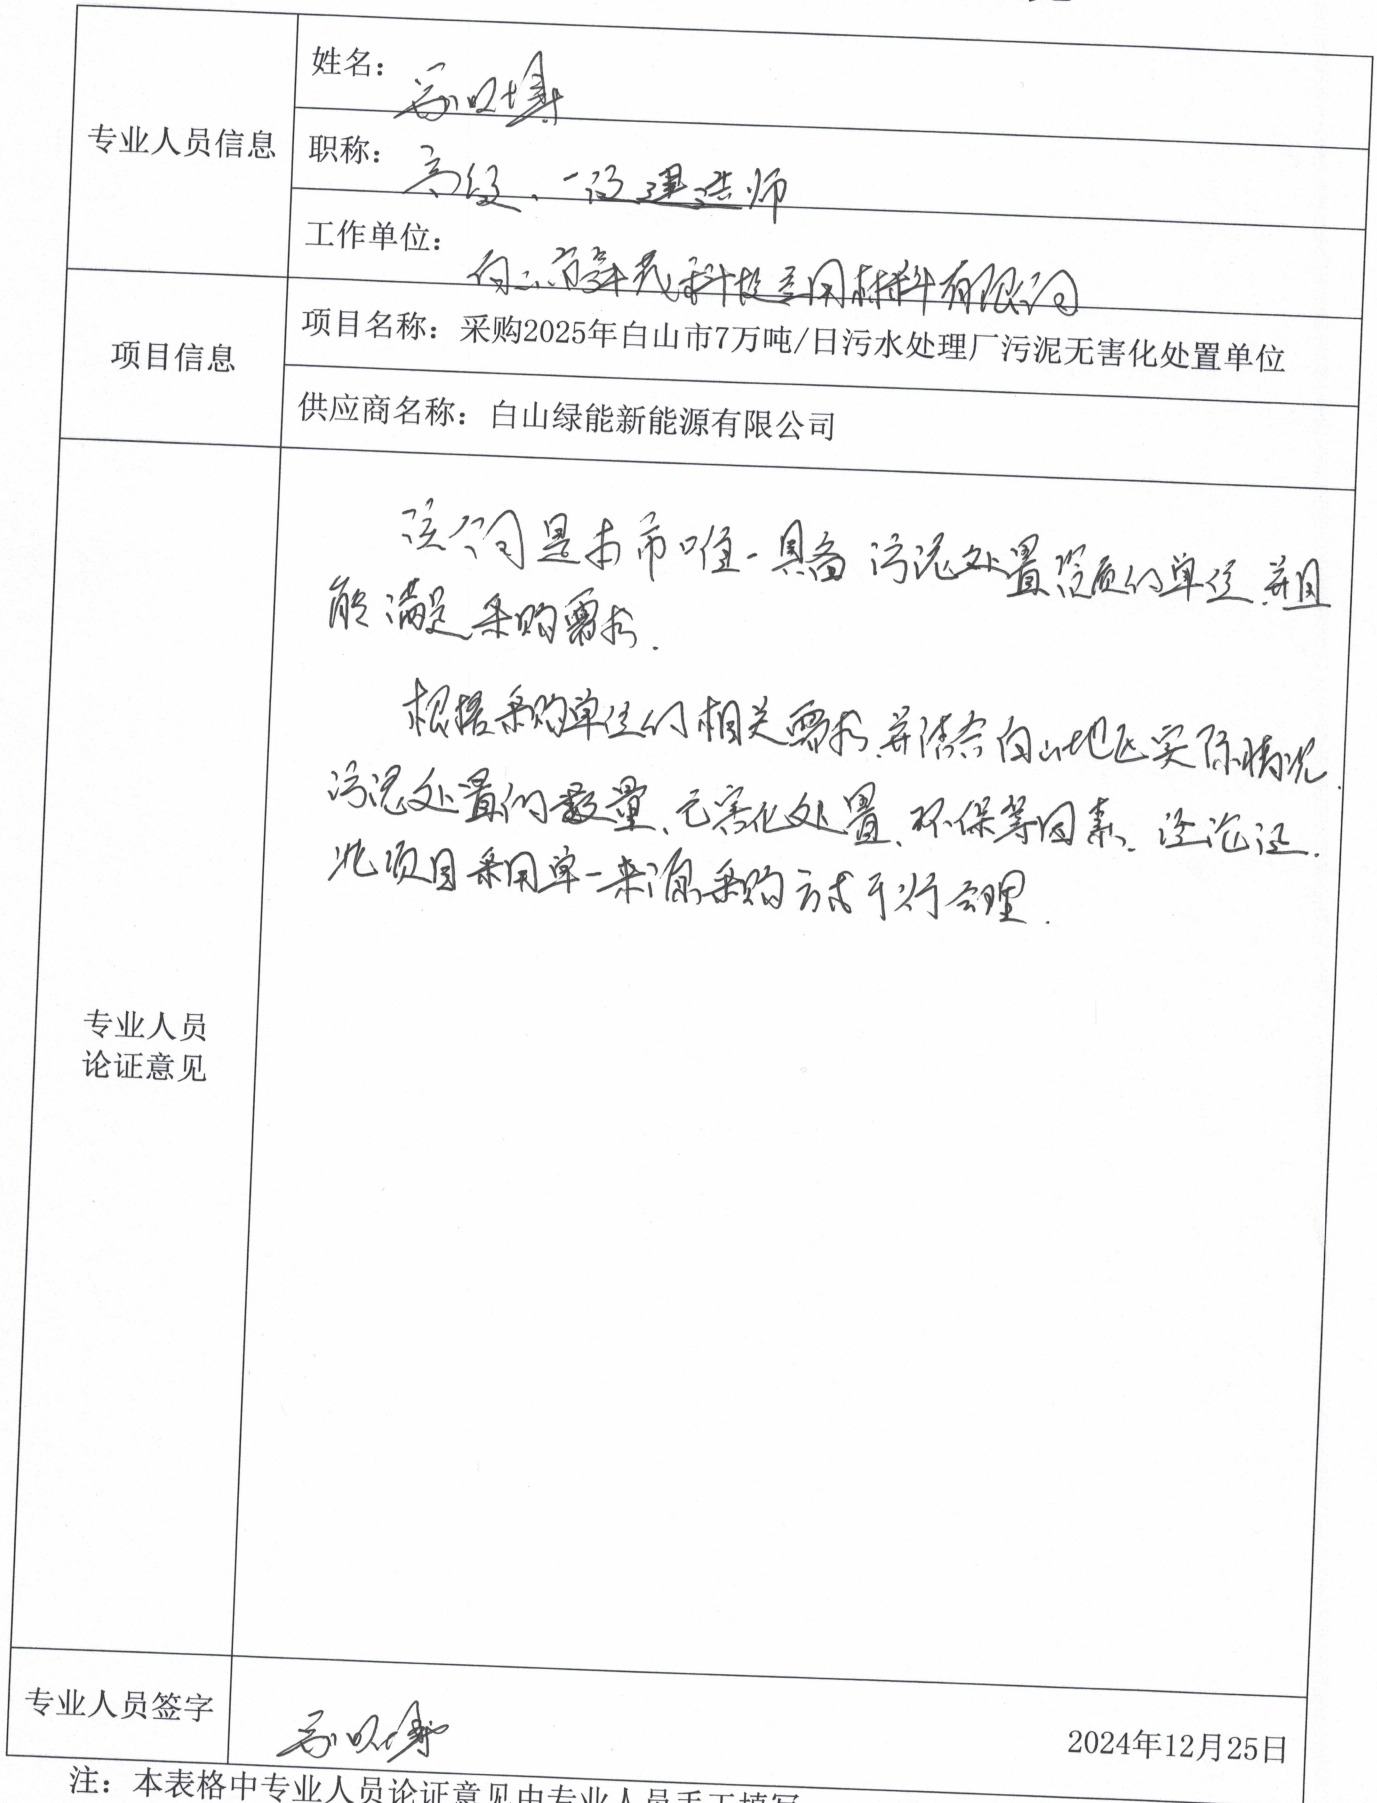 专业人员信息
姓名：
职称：高级、一级建造师
工作单位：白山市 科技 用材料有限公司
项目信息
项目名称：采购2025年白山市7万吨/日污水处理厂污泥无害化处置单位
供应商名称：白山绿能新能源有限公司
专业人员
论证意见
该公司是本市唯一具备污泥处置资质的单位，并且
能满足采购需求.
根据采购单位的相关需求，并结合白山地区实际情况.
污泥处置的数量、无害化处置、环保等因素. 经论证.
此项目采用单一来源采购方式可行合理.
专业人员签字
2024年12月25日
注：本表格中专业人员论证意见由专业人员手工填写